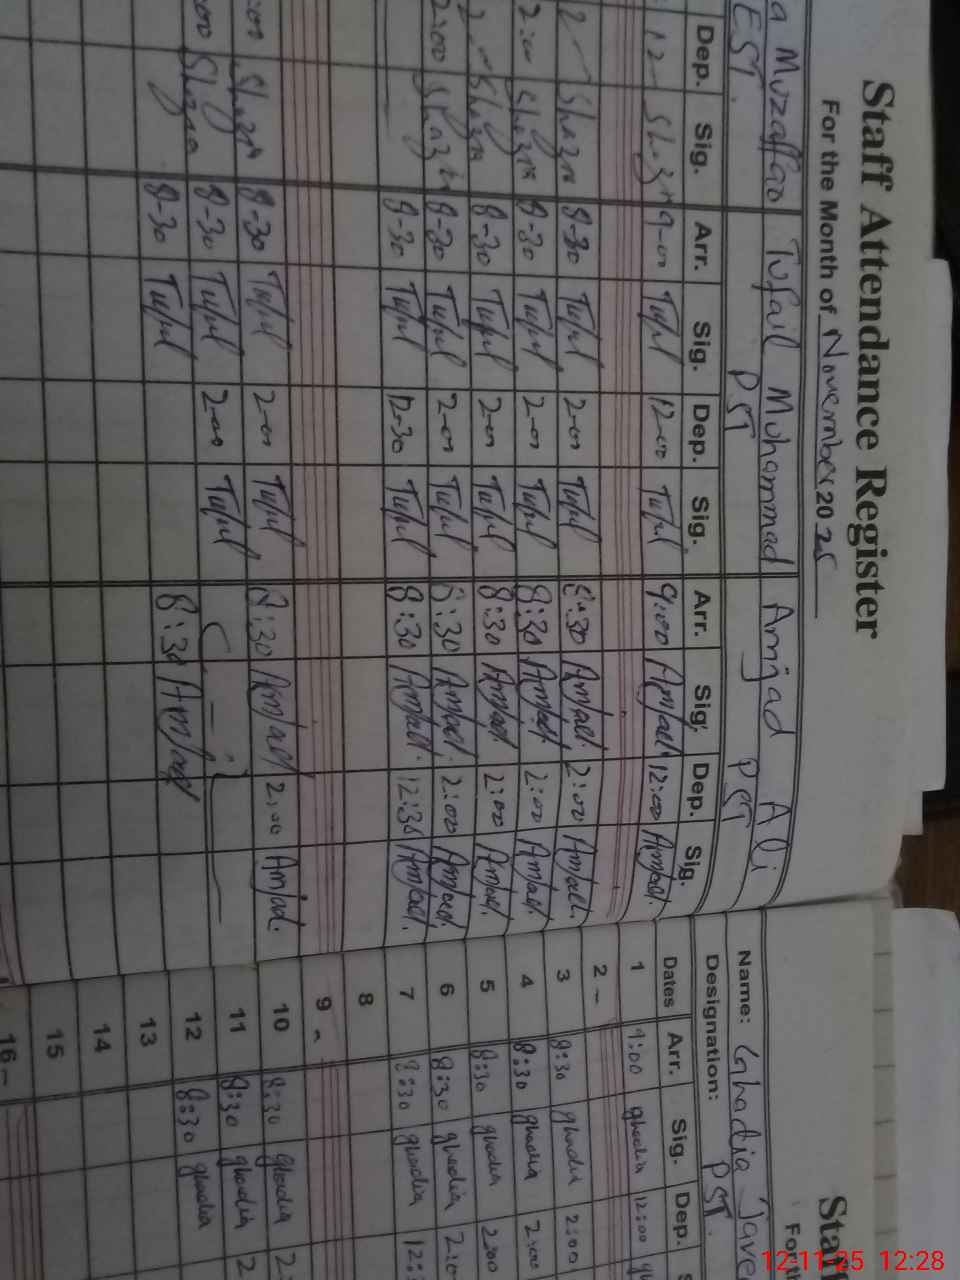 Staff Attendance Register
For the Month of November 2025
a Muzaffar Tufail Muhammad Amjad Ali
EST. PST PST
Dep. Sig. Arr. Sig. Dep. Sig. Arr. Sig. Dep. Sig.
12- Shazra 9-00 Tufail 12-00 Tufail 9:00 Amjad 12:00 Amjad.
2- Shazra 8-30 Tufail 2-00 Tufail 8:30 Amjad. 2:00 Amjad.
2:00 Shazra 8-30 Tufail 2-00 Tufail 8:30 Amjad. 2:00 Amjad.
2- Shazra 8-30 Tufail 2-00 Tufail 8:30 Amjad. 2:00 Amjad.
2:00 Shazra 8-30 Tufail 2-00 Tufail 8:30 Amjad. 2:00 Amjad.
8-30 Tufail 12-30 Tufail 8:30 Amjad. 12:30 Amjad.
:00 Shazra 8-30 Tufail 2-00 Tufail 8:30 Amjad 2:00 Amjad.
:00 Shazra 8-30 Tufail 2-00 Tufail
8-30 Tufail 8:30 Amjad
Staf
For th
Name: Ghadia Jave
Designation: PST.
Dates Arr. Sig. Dep. S
1 9:00 ghadia 12:00
2 -
3 8:30 ghadia 2:00
4 8:30 ghadia 2:00
5 8:30 ghadia 2:00
6 8:30 ghadia 2:0
7 8:30 ghadia 12:
8
9 -
10 8:30 ghadia 2:
11 8:30 ghadia 2
12 8:30 ghadia
13
14
15
16 -
12-11-25 12:28